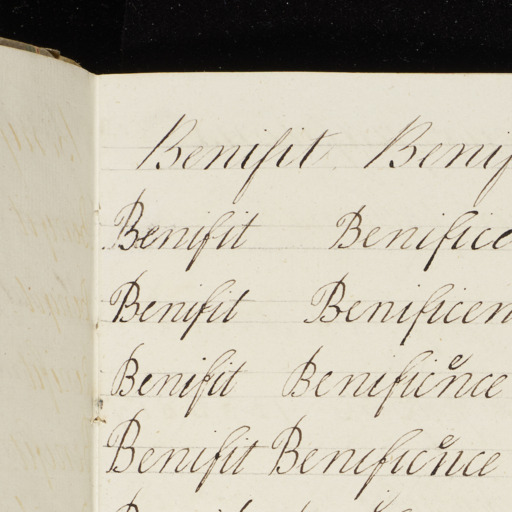 Benifit Benif
Benifit Benifice
Benifit Benificen
Benifit Benificence
Benifit Benificence